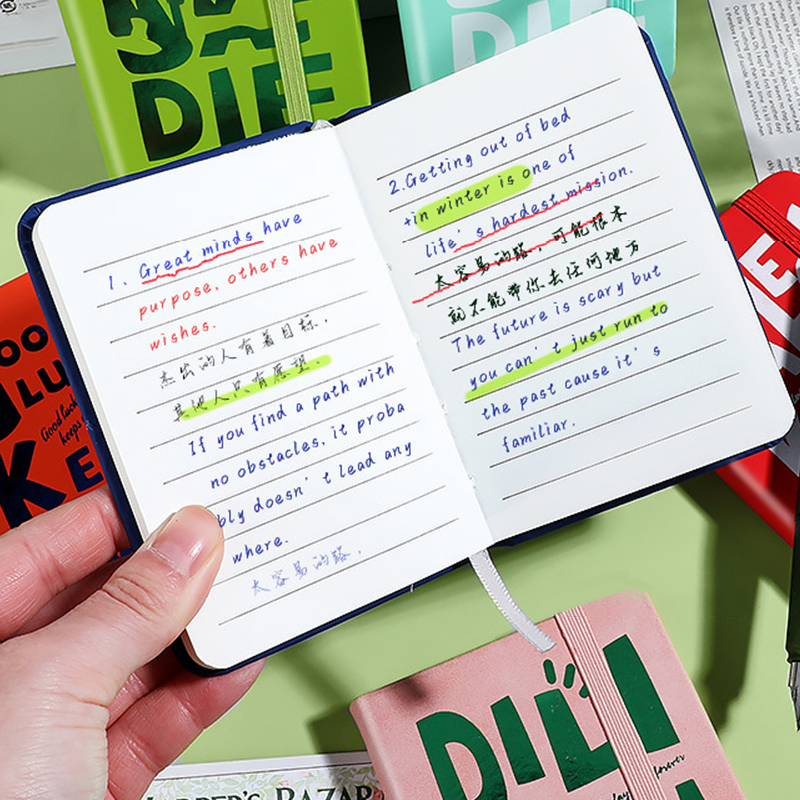 1. Great minds have
purpose, others have
wishes.
杰出的人有着目标,
其他人只有愿望.
If you find a path with
no obstacles, it proba
bly doesn't lead any
where.
太容易的路,
2.Getting out of bed
+in winter is one of
life's hardest mission.
太容易的路,可能根本
就不能带你去任何地方
The future is scary but
you can't just run to
the past cause it's
familiar.
DIE
DIE
Good luck
keeps
KE
DILI
HARPER'S BAZAR